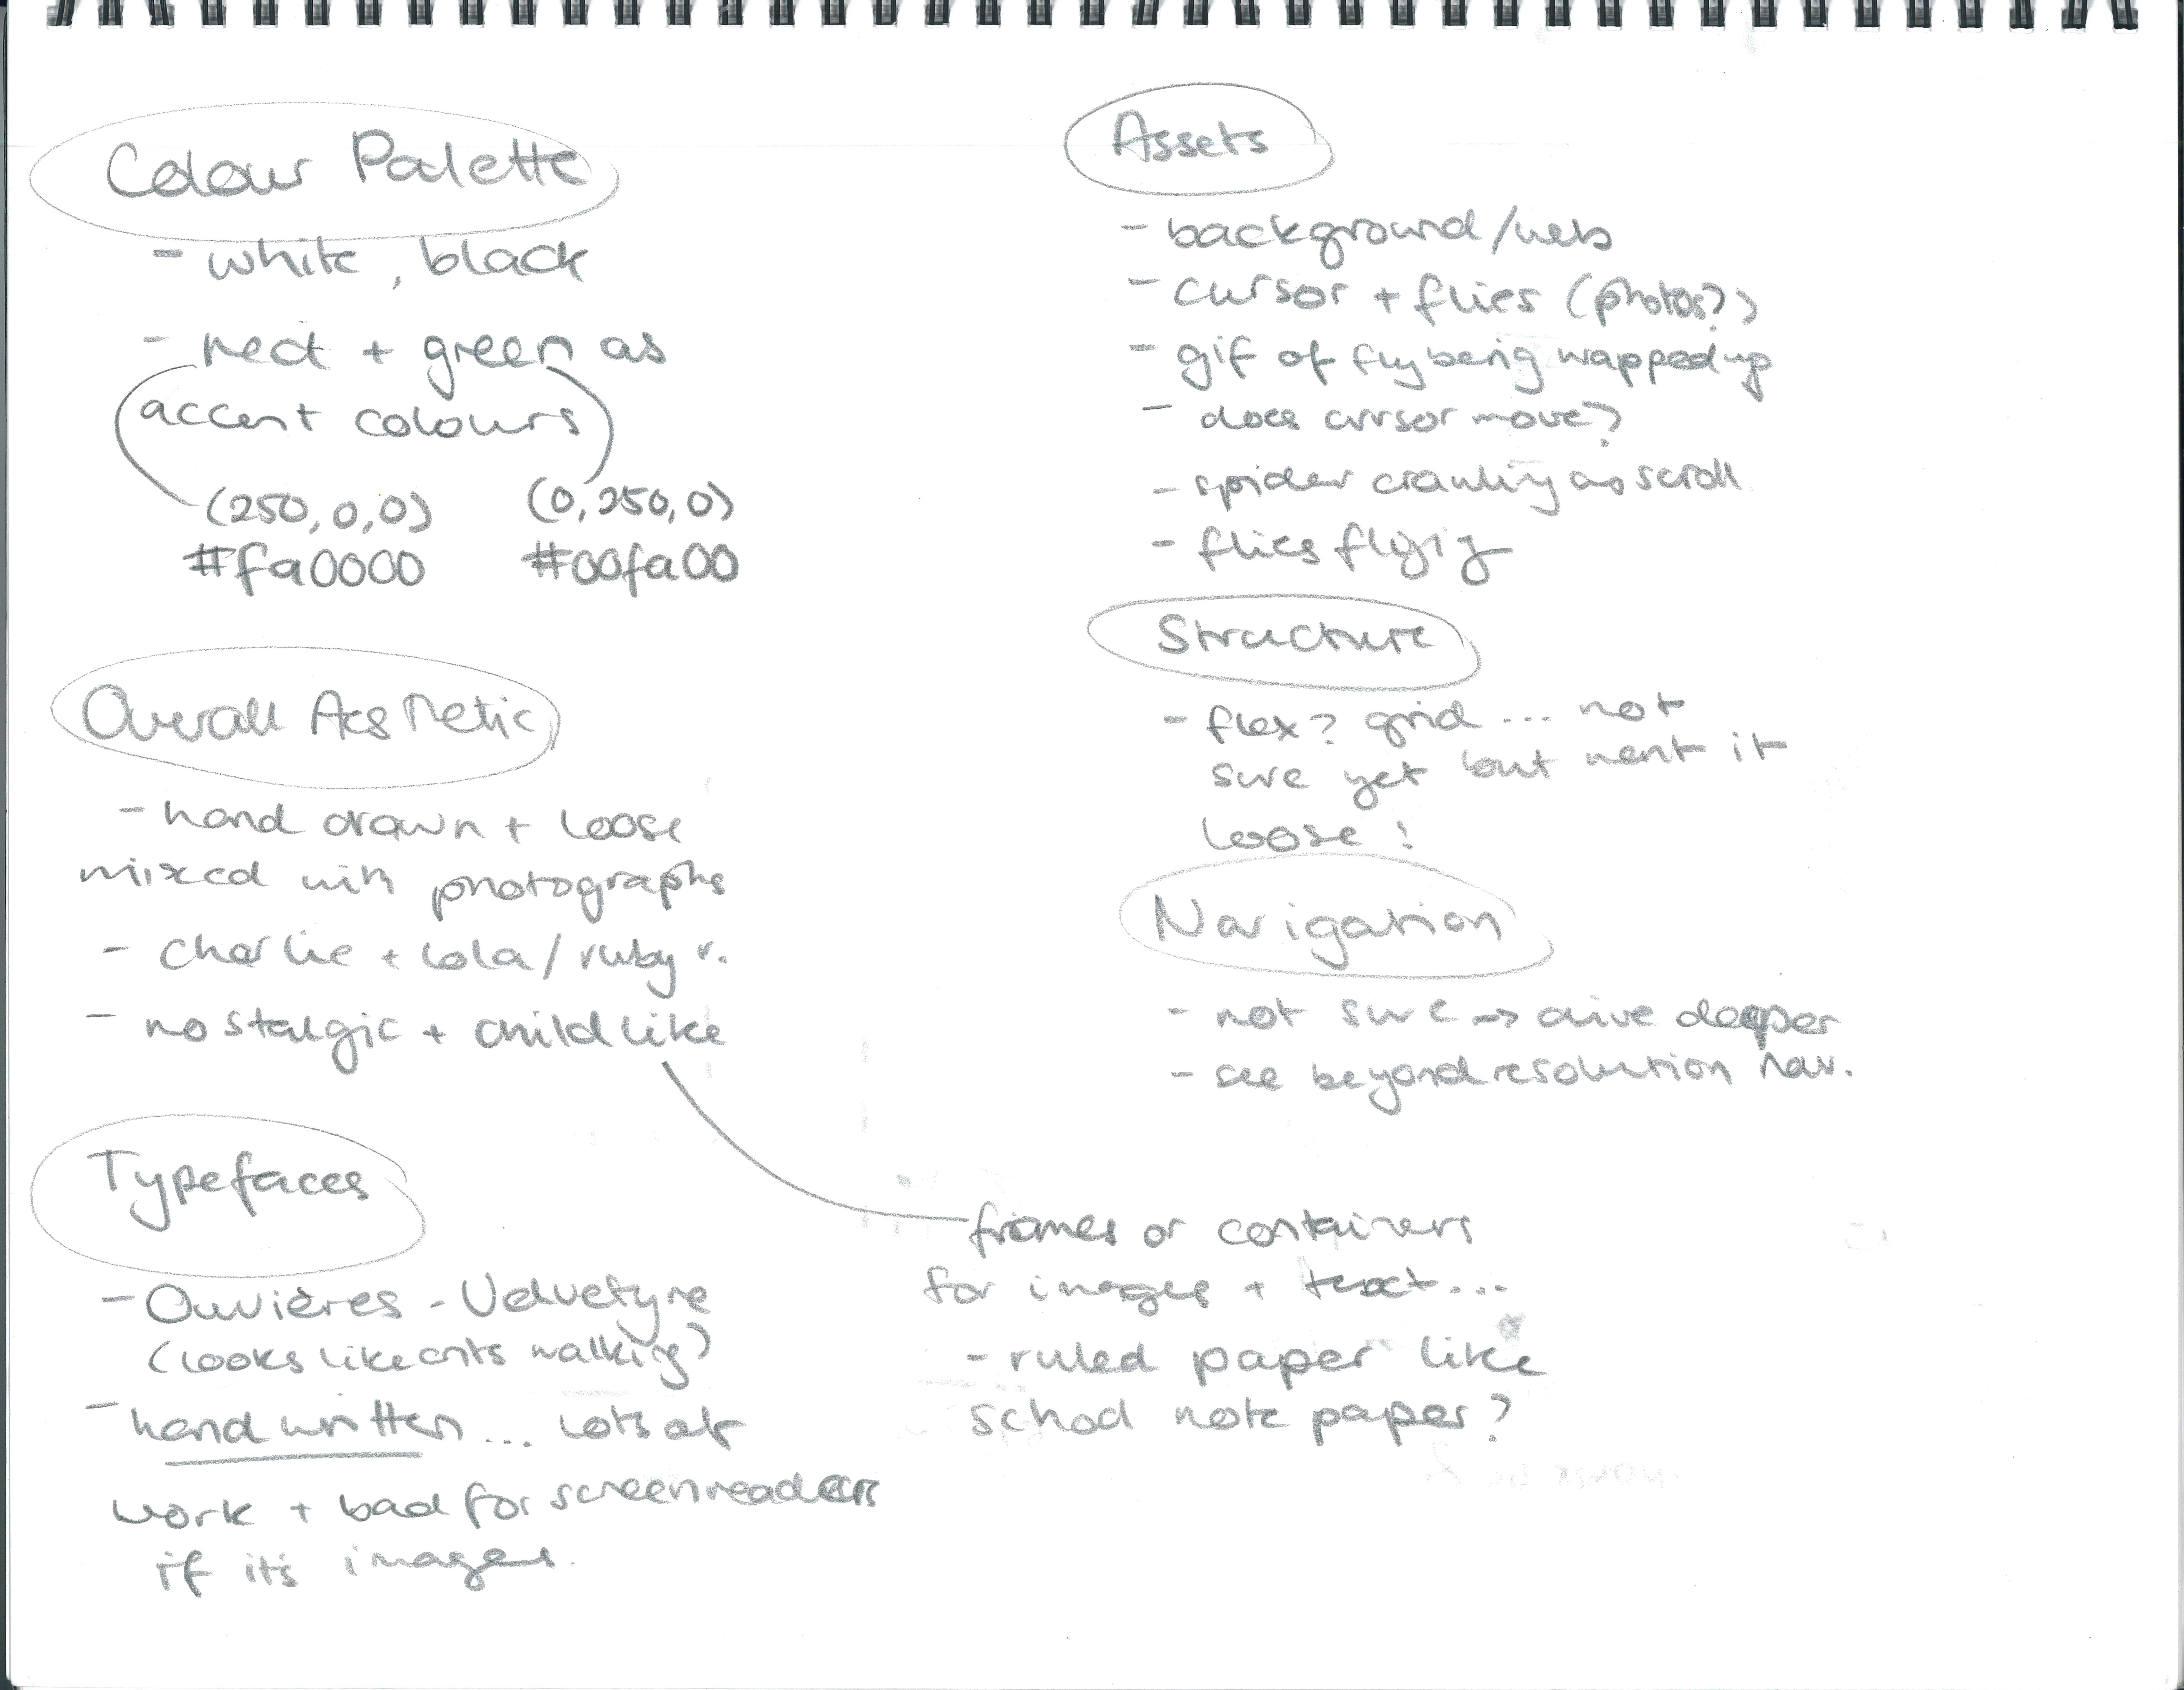 Colour Palette
- white, black
- red + green as
accent colours
(250,0,0) (0,250,0)
#fa0000 #00fa00
Overall Aesthetic
- hand drawn + loose
mixed with photographs
- Charlie + Lola / ruby r.
- nostalgic + childlike
Typefaces
- Ouvières - Velvetyne
(looks like ants walking)
- hand written... lots of
work + bad for screenreaders
if it's images.
Assets
- background/web
- cursor + flies (photos?)
- gif of fly being wrapped up
- does cursor move?
- spider crawling as scroll
- flies flying
Structure
- flex? grid ... not
sure yet but want it
loose!
Navigation
- not sure → dive deeper
- see beyond resolution nav.
frames or containers
for images + text...
- ruled paper like
school note paper?